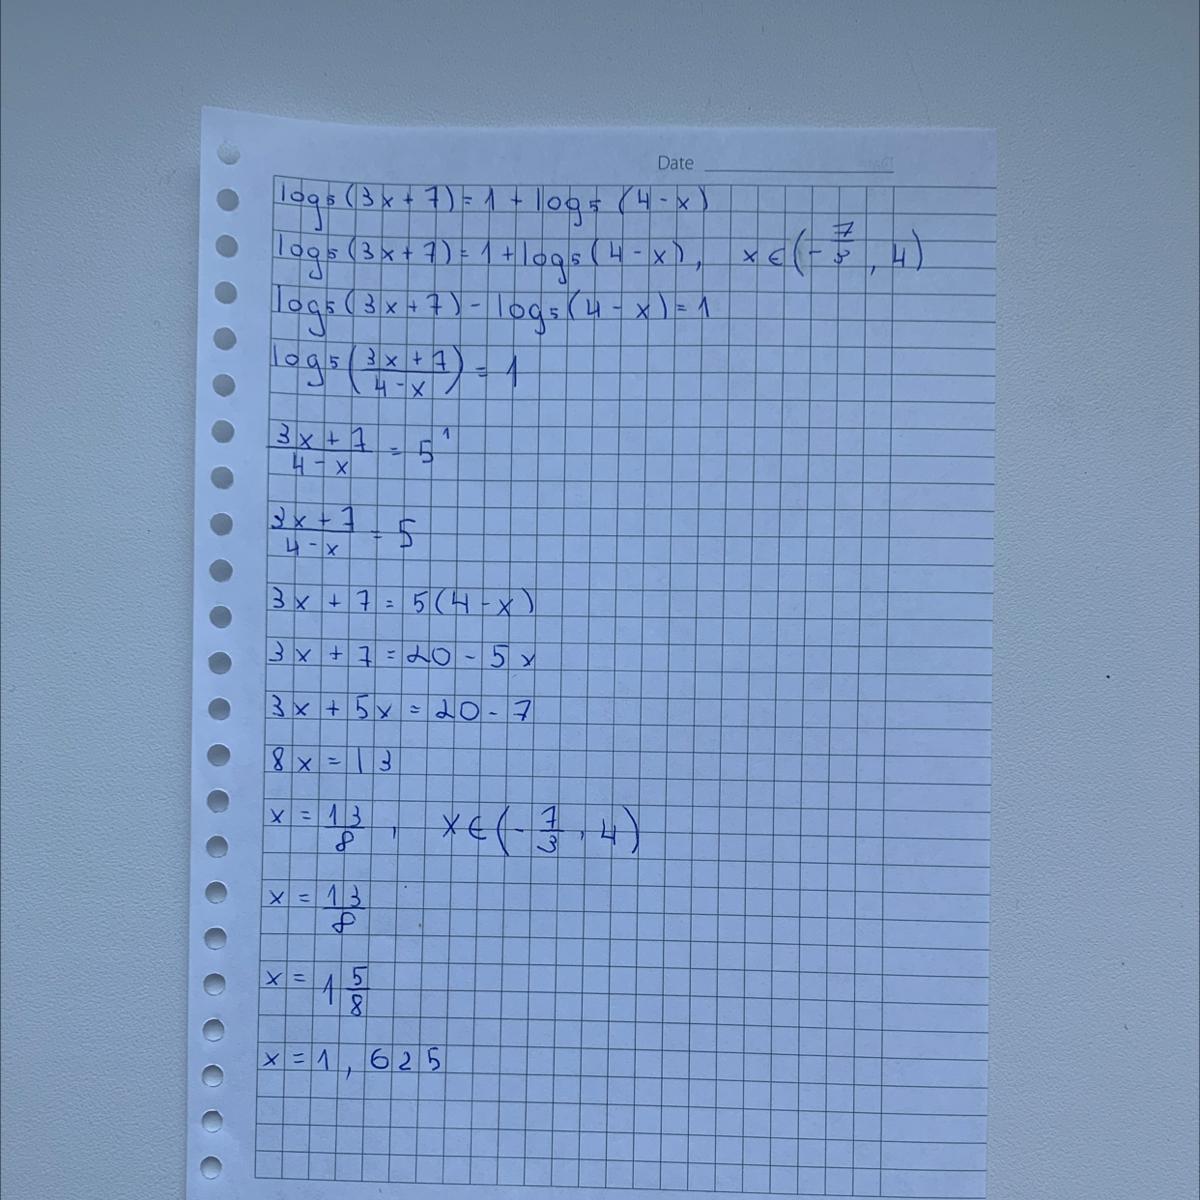 Date
log₅(3x+7)=1+log₅(4-x)
log₅(3x+7)=1+log₅(4-x), x∈(-7/3, 4)
log₅(3x+7)-log₅(4-x)=1
log₅((3x+7)/(4-x))=1
(3x+7)/(4-x)=5¹
(3x+7)/(4-x)=5
3x+7=5(4-x)
3x+7=20-5x
3x+5x=20-7
8x=13
x=13/8, x∈(-7/3, 4)
x=13/8
x=1 5/8
x=1,625